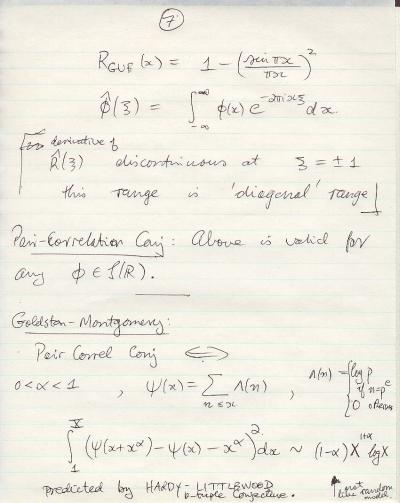 7
R_GUE(x) = 1 - (sin πx / πx)^2
φ̂(ξ) = ∫_{-∞}^{∞} φ(x) e^{-2πixξ} dx.
derivative of
R̂(ξ) discontinuous at ξ = ±1
this range is 'diagonal' range
Pair-Correlation Conj: Above is valid for
any φ ∈ S(ℝ).
Goldston-Montgomery:
Pair Correl Conj ⟺
0<α<1 , ψ(x) = ∑_{n≤x} Λ(n) , Λ(n) = { log p if n=p^e
0 otherwise
∫_1^X (ψ(x+x^α) - ψ(x) - x^α)^2 dx ~ (1-α) X^{1+α} log X
predicted by HARDY-LITTLEWOOD
k-tuple Conjecture.
not
like random
model.